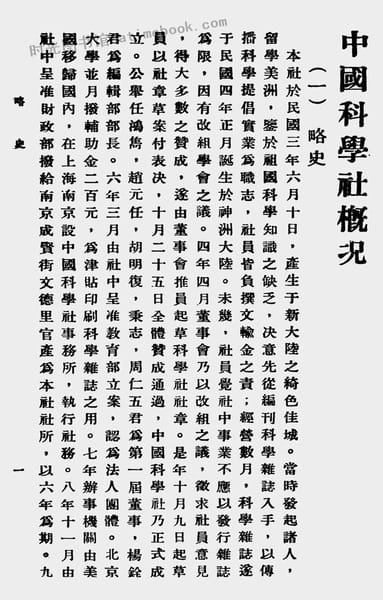 中國科學社概況
（一）略史
本社於民國三年六月十日，產生于新大陸之綺色佳城。當時發起諸人，
留學美洲，鑒於祖國科學知識之缺乏，決意先從編刊科學雜誌入手，以傳
播科學提倡實業為職志，社員皆負撰文輸金之責；經營數月，科學雜誌遂
于民國四年正月誕生於神洲大陸。未幾，社員覺社中事業不應以發行雜誌
為限，因有改組學會之議。四年四月董事會乃以改組之議，徵求社員意見
，得大多數之贊成，遂由董事會推員起草科學社社章。是年十月九日起草
員以社章草案付表決，十月二十五日全體贊成通過，中國科學社乃正式成
立。公舉任鴻雋，趙元任，胡明復，秉志，周仁五君為第一屆董事，楊銓
君為編輯部部長。六年三月由社中呈准教育部立案，認為法人團體。北京
大學並月撥輔助金二百元，為津貼印刷科學雜誌之用。七年辦事機關由美
國移歸國內，在上海南京設中國科學社事務所，執行社務。八年十一月由
社中呈准財政部撥給南京成賢街文德里官產為本社社所，以六年為期。九
略史
一